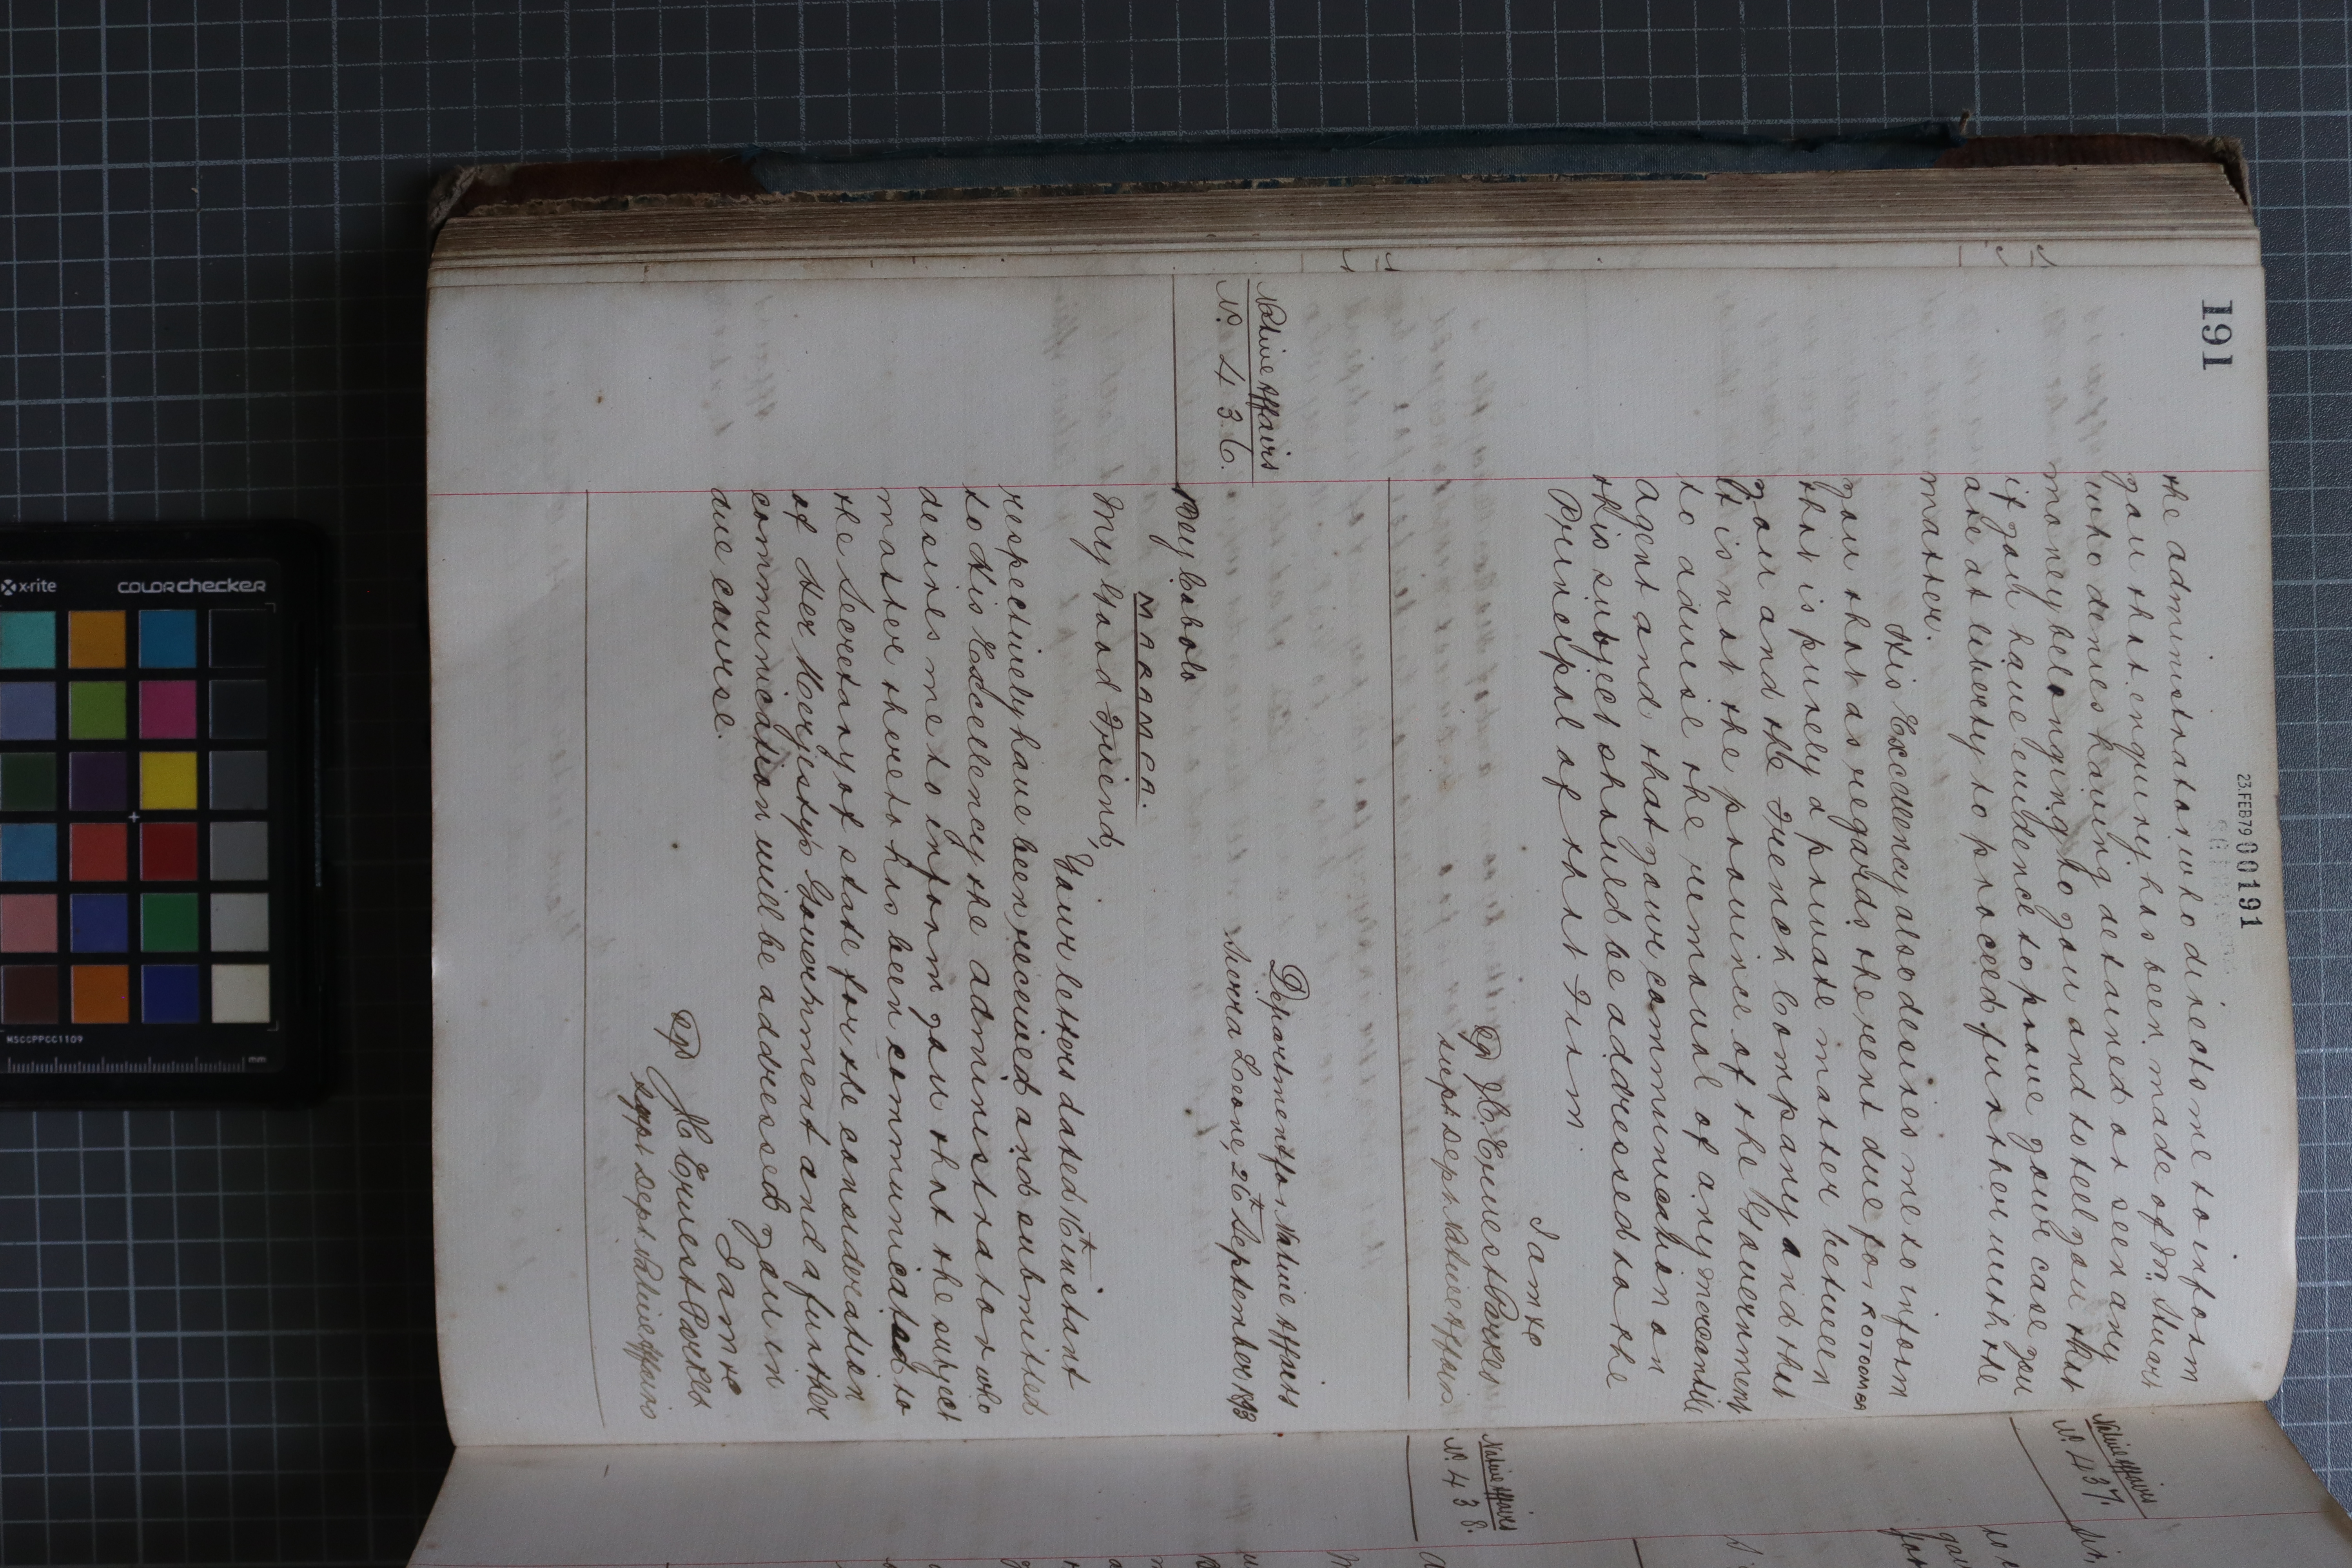 191
23.FEB79 000191
the administrator who directs me to inform
you that enquiry has been made of Mr. Stuart
who denies having detained or seen any
money belonging to you and to tell you that
if you have evidence to prove your case you
are at liberty to proceed further with the
matter.
His Excellency also desires me to inform
you that as regards the rent due for KOTOOMBA
that is purely a private matter between
you and the French Company and that
It is not the province of the Government
to advise the removal of any mercantile
agent and that your communication on
this subject should be addressed to the
Principal of that Firm.
I am &c
J.C. Ernest Parkes
supt dept Native Affairs
Native Affairs
No. 436.
Department for Native Affairs
Sierra Leone, 26th September 1893
Bey Cobolo
MARAMCA.
My Good Friend,
Your letters dated 16th instant
respectively have been received and submitted
to His Excellency the administrator who
desires me to inform you that the subject
matter thereto has been communicated to
the Secretary of State for the consideration
of Her Majesty's Government and a further
communication will be addressed you in
due course.
I am &c
J.C. Ernest Parkes
supt dept Native Affairs
Native Affairs
No. 437.
Native Affairs
No. 438.
x-rite
COLORchecker
MSCCPPCC1109
mm